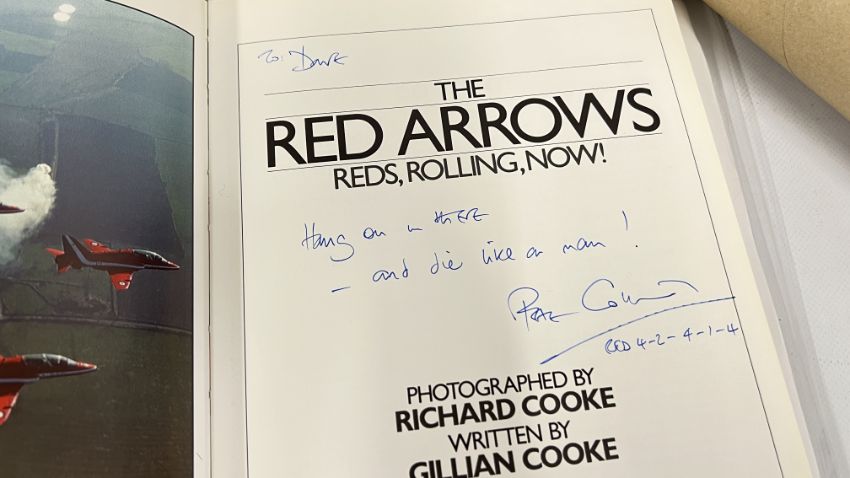 To: Dave
THE
RED ARROWS
REDS, ROLLING, NOW!
Hang on in there
- and die like a man!
RED 4-2-4-1-4
PHOTOGRAPHED BY
RICHARD COOKE
WRITTEN BY
GILLIAN COOKE